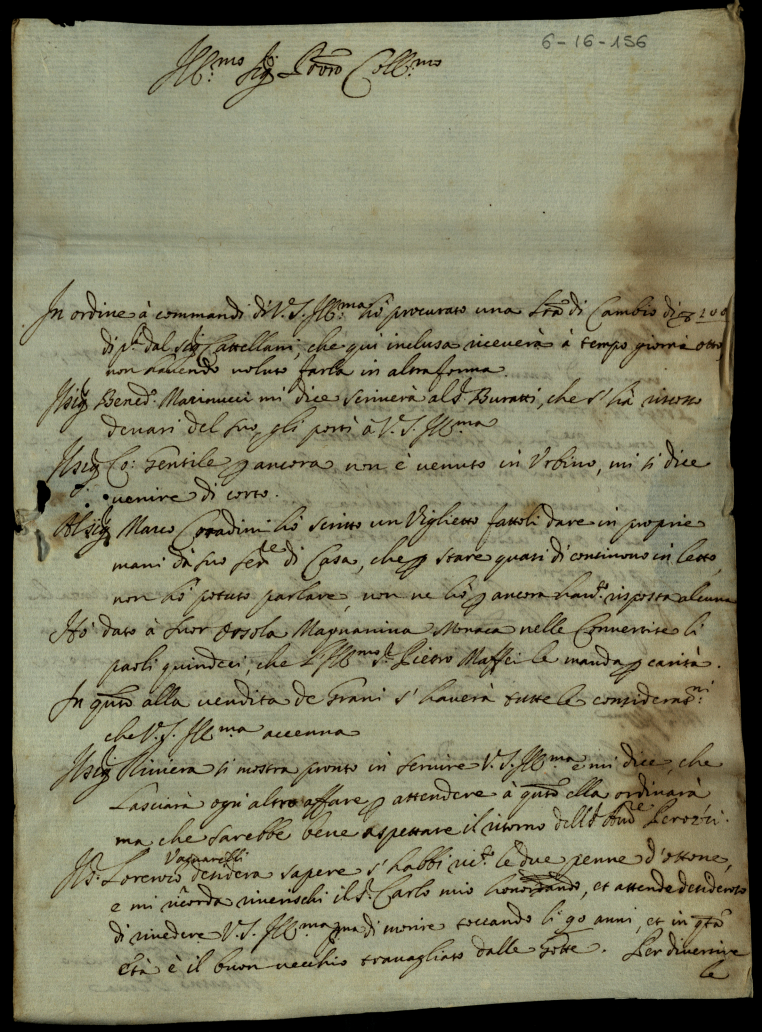 6-16-156
Ill:mo Sig: Prōn Coll:mo
In ordine à commandi di V.S. Ill:ma hò procurato una Lrā di Cambio di 200
di pā dal Sig Castellani, che qui inclusa riceverà à tempo giorni otto,
non havendo voluto farla in altra forma
Il sig Bened: Marionucci mi dice scriverà al S: Buratti, che s'hà riscosso
denari del suo, gli porti à V.S. Ill:ma
Il sig Co: Gentile p ancora non è venuto in Urbino, mi si dice
venire di corto.
Al sig Marco Corradini hò scritto un Viglietto fattoli dare in proprie
mani dà suo Ser:re di Casa, che p stare quasi di continovo in letto,
non hò potuto parlare, non ne hò p ancora havu: risposta alcuna
Hò dato à Suor Orsola Magnanina Monaca nelle Convertite li
paoli quindeci, che l'Ill:mo S: Pietro Maffei le manda p carità.
In qūto alla vendita de Grani s'haverà tutte le consideraz:ni
che V.S. Ill:ma accenna
Il sig Riviera si mostra pronto in servire V.S. Ill:ma e mi dice, che
lasciarà ogni altro affare p attendere à qūto ella ordinarà
ma che sarebbe bene aspettare il ritorno dell S: And:e Perozzi.
Il S: Lorenzo Vagnarelli desidera sapere s'habbi ric: le due penne d'ottone,
e mi ricorda riverischi il S: Carlo mio honorando, et attende desideroso
di rivedere V.S. Ill:ma pma di morire toccando li 90 anni, et in qtā
età è il buon vecchio travagliato dalle Gotte. Per divertire
le